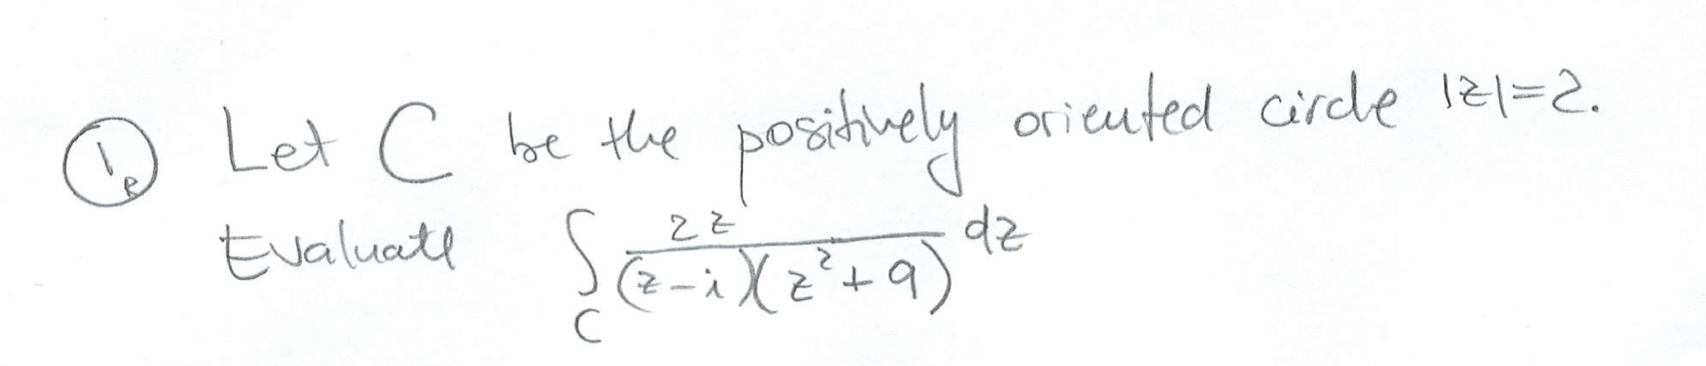 1. Let C be the positively oriented circle |z|=2.
Evaluate ∫_C 2z/((z-i)(z²+9)) dz